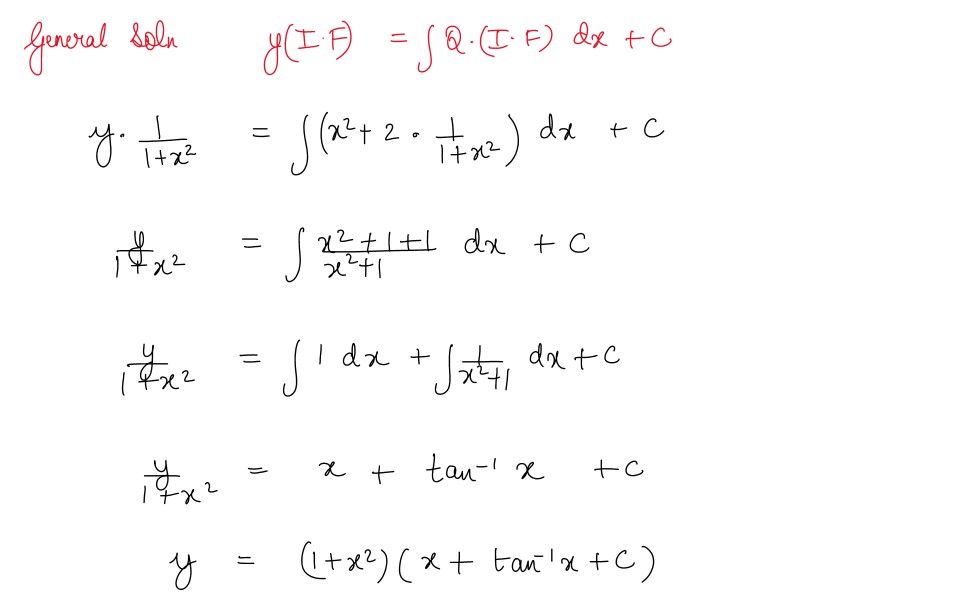 General Soln y(I·F) = ∫ Q·(I·F) dx + C
y · 1/(1+x²) = ∫ (x² + 2 · 1/(1+x²)) dx + C
y/(1+x²) = ∫ (x²+1+1)/(x²+1) dx + C
y/(1+x²) = ∫ 1 dx + ∫ 1/(x²+1) dx + C
y/(1+x²) = x + tan⁻¹ x + C
y = (1+x²)(x + tan⁻¹x + C)